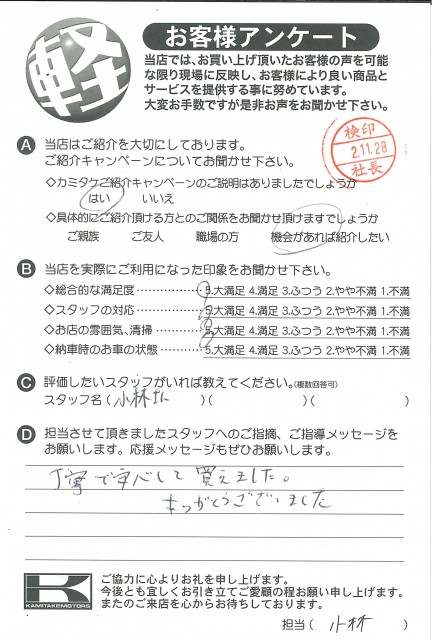 軽
お客様アンケート
当店では、お買い上げ頂いたお客様の声を可能
な限り現場に反映し、お客様により良い商品と
サービスを提供する事に努めています。
大変お手数ですが是非お声をお聞かせ下さい。
検印
2.11.28
社長
A 当店はご紹介を大切にしております。
ご紹介キャンペーンについてお聞かせ下さい。
◇カミタケご紹介キャンペーンのご説明はありましたでしょうか
はい いいえ
◇具体的にご紹介頂ける方とのご関係をお聞かせ頂けますでしょうか
ご親族 ご友人 職場の方 機会があれば紹介したい
B 当店を実際にご利用になった印象をお聞かせ下さい。
◇総合的な満足度……………5.大満足 4.満足 3.ふつう 2.やや不満 1.不満
◇スタッフの対応……………5.大満足 4.満足 3.ふつう 2.やや不満 1.不満
◇お店の雰囲気、清掃………5.大満足 4.満足 3.ふつう 2.やや不満 1.不満
◇納車時のお車の状態………5.大満足 4.満足 3.ふつう 2.やや不満 1.不満
C 評価したいスタッフがいれば教えてください。(複数回答可)
スタッフ名(小林さん )( )( )
D 担当させて頂きましたスタッフへのご指摘、ご指導メッセージを
お願いします。応援メッセージもぜひお願いします。
丁寧で安心して買えました。
ありがとうございました
K
KAMITAKE MOTORS
ご協力に心よりお礼を申し上げます。
今後とも宜しくお引き立てご愛顧の程お願い申し上げます。
またのご来店を心からお待ちしております。
担当( 小林 )